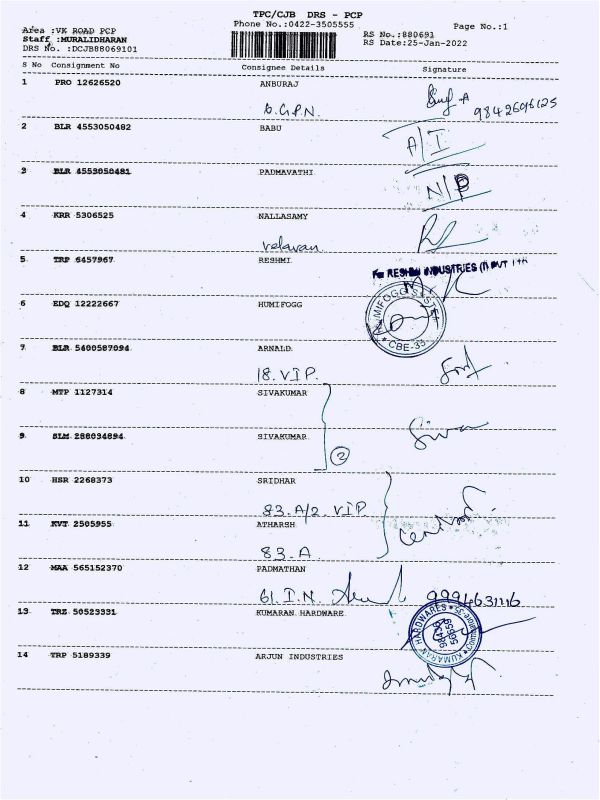 TPC/CJB DRS - PCP
Phone No.:0422-3505555
Page No.:1
Area :VK ROAD PCP
Staff :MURALIDHARAN
DRS No. :DCJB88069101
RS No.:880691
RS Date:25-Jan-2022
S No Consignment No Consignee Details Signature
1 PRO 12626520 ANBURAJ
2 BLR 4553050482 BABU
A/I
3 BLR 4553050481 PADMAVATHI
N/P
4 KRR 5306525 NALLASAMY
velavan
5 TRP 6457967 RESHMI
For RESHMI INDUSTRIES (I) PVT LTD
6 EDQ 12222667 HUMIFOGG
CBE-33
7 BLR 5400587094 ARNALD
18. V.I.P.
8 MTP 1127314 SIVAKUMAR
9 SLM 288034894 SIVAKUMAR
Siva
2
10 HSR 2268373 SRIDHAR
83. A/2. V.I.P.
11 KVT 2505955 ATHARSH
83. A
12 MAA 565152370 PADMATHAN
61. I.N. 9994631116
13 TRZ 50523331 KUMARAN HARDWARE
KUMARAN HARDWARES
14 TRP 5189339 ARJUN INDUSTRIES